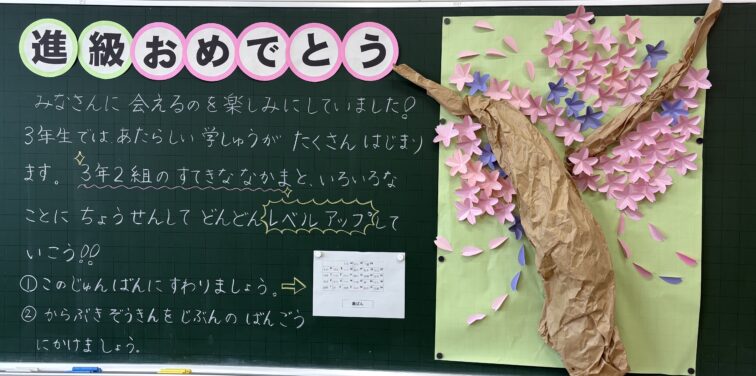 進級おめでとう
みなさんに会えるのを楽しみにしていました!
3年生では、あたらしい学しゅうがたくさんはじまり
ます。3年2組のすてきななかまと、いろいろな
ことにちょうせんしてどんどんレベルアップして
いこう!!
①このじゅんばんにすわりましょう。⇨
②からぶきぞうきんをじぶんのばんごう
にかけましょう。